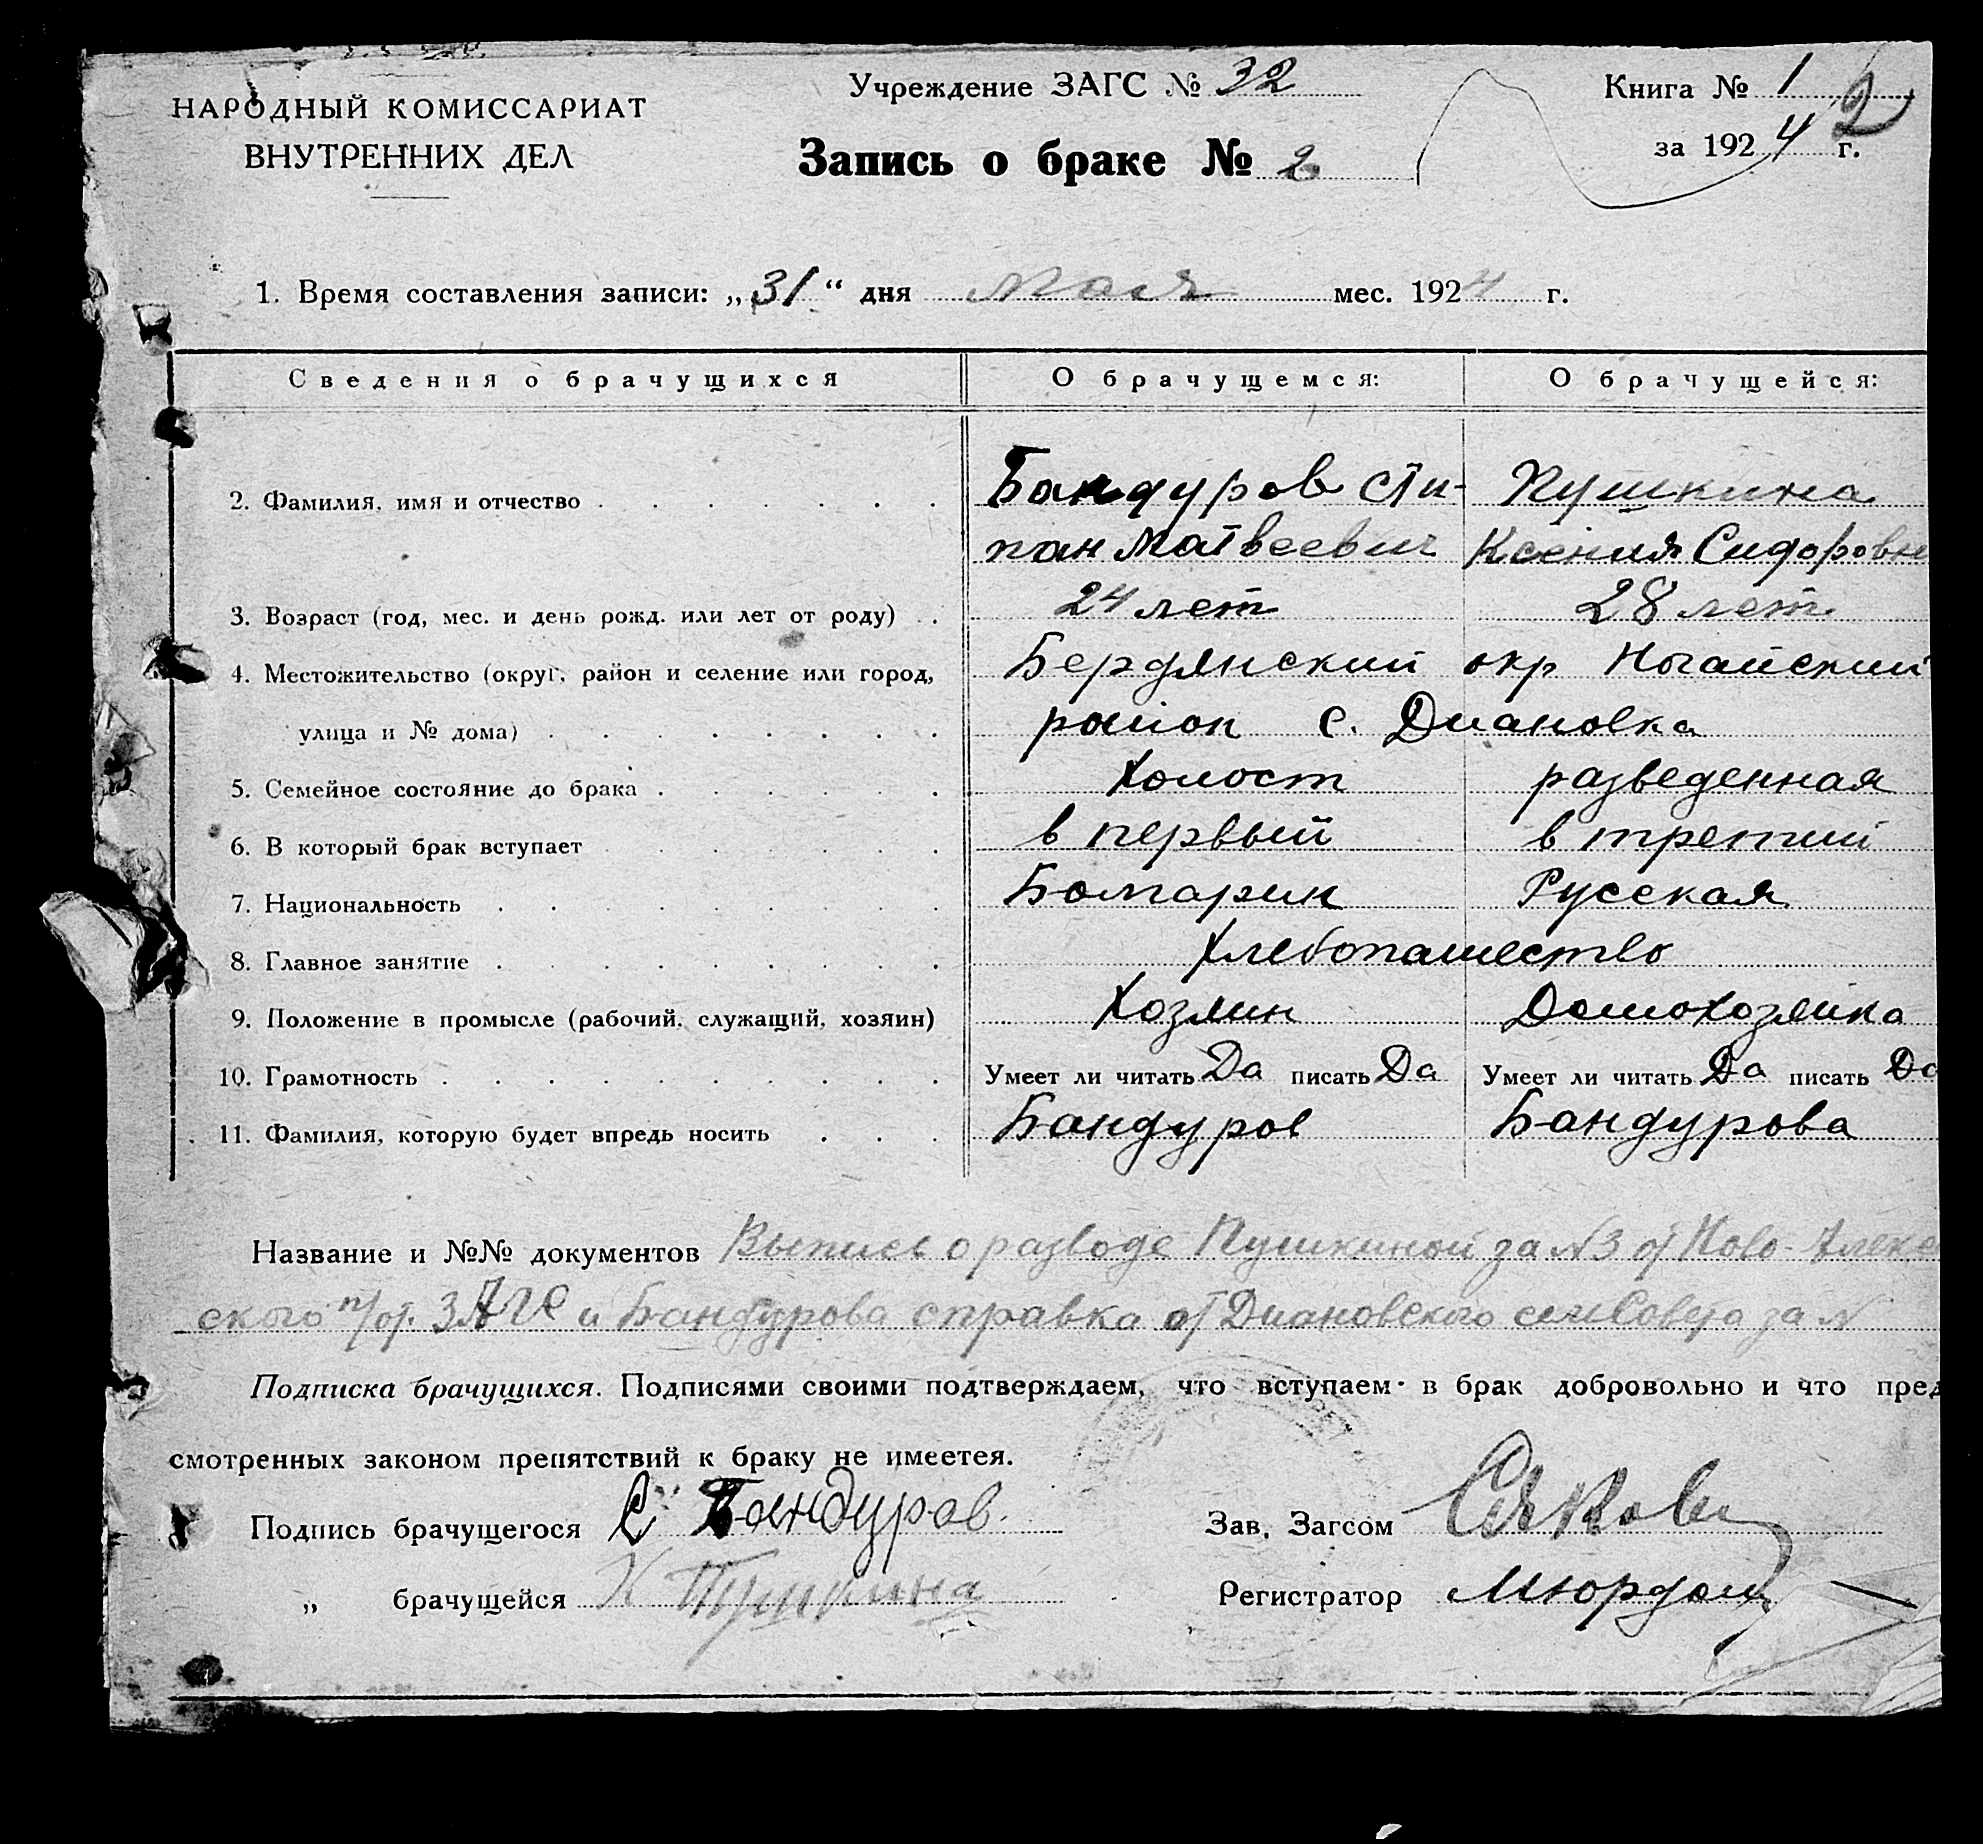 НАРОДНЫЙ КОМИССАРИАТ
ВНУТРЕННИХ ДЕЛ
Учреждение ЗАГС № 32
Запись о браке № 2
Книга № 1
2
за 1924 г.
1. Время составления записи: „31“ дня мая мес. 1924 г.
Сведения о брачущихся О брачущемся: О брачущейся:
2. Фамилия, имя и отчество Бандуров Сти- Пушкина
пан Матвеевич Ксения Сидоровн
3. Возраст (год, мес. и день рожд. или лет от роду) 24 лет 28 лет
4. Местожительство (округ, район и селение или город, Бердянский окр Ногайский
улица и № дома) район с. Диановка
5. Семейное состояние до брака Холост разведенная
6. В который брак вступает в первый в третий
7. Национальность Болгарин Русская
8. Главное занятие Хлебопашество
9. Положение в промысле (рабочий, служащий, хозяин) Хозяин Домохозяйка
10. Грамотность Умеет ли читать Да писать Да Умеет ли читать Да писать Да
11. Фамилия, которую будет впредь носить Бандуров Бандурова
Название и №№ документов Выпись о разводе Пушкиной за N3 от Ново-Алекс
ского п/от. ЗАГС и Бандурова справка от Диановского сельСовета за N
Подписка брачущихся. Подписями своими подтверждаем, что вступаем в брак добровольно и что пред
смотренных законом препятствий к браку не имеетея.
Подпись брачущегося С Бандуров.
Зав. Загсом
„ брачущейся К Пушкина
Регистратор